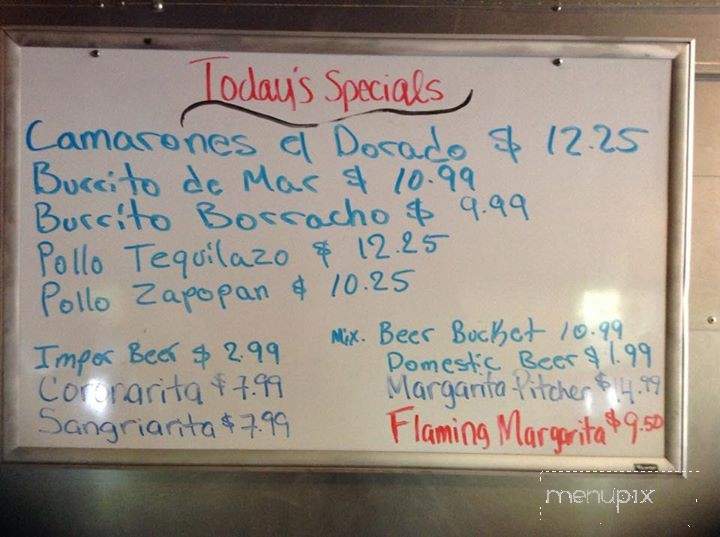 Today's Specials
Camarones el Dorado $ 12.25
Burrito de Mar $ 10.99
Burrito Borracho $ 9.99
Pollo Tequilazo $ 12.25
Pollo Zapopan $ 10.25
Impor Beer $ 2.99
Coronarita $ 7.99
Sangriarita $ 7.99
Mix. Beer Bucket 10.99
Domestic Beer $ 1.99
Margarita Pitcher $ 14.99
Flaming Margarita $ 9.50
menupix